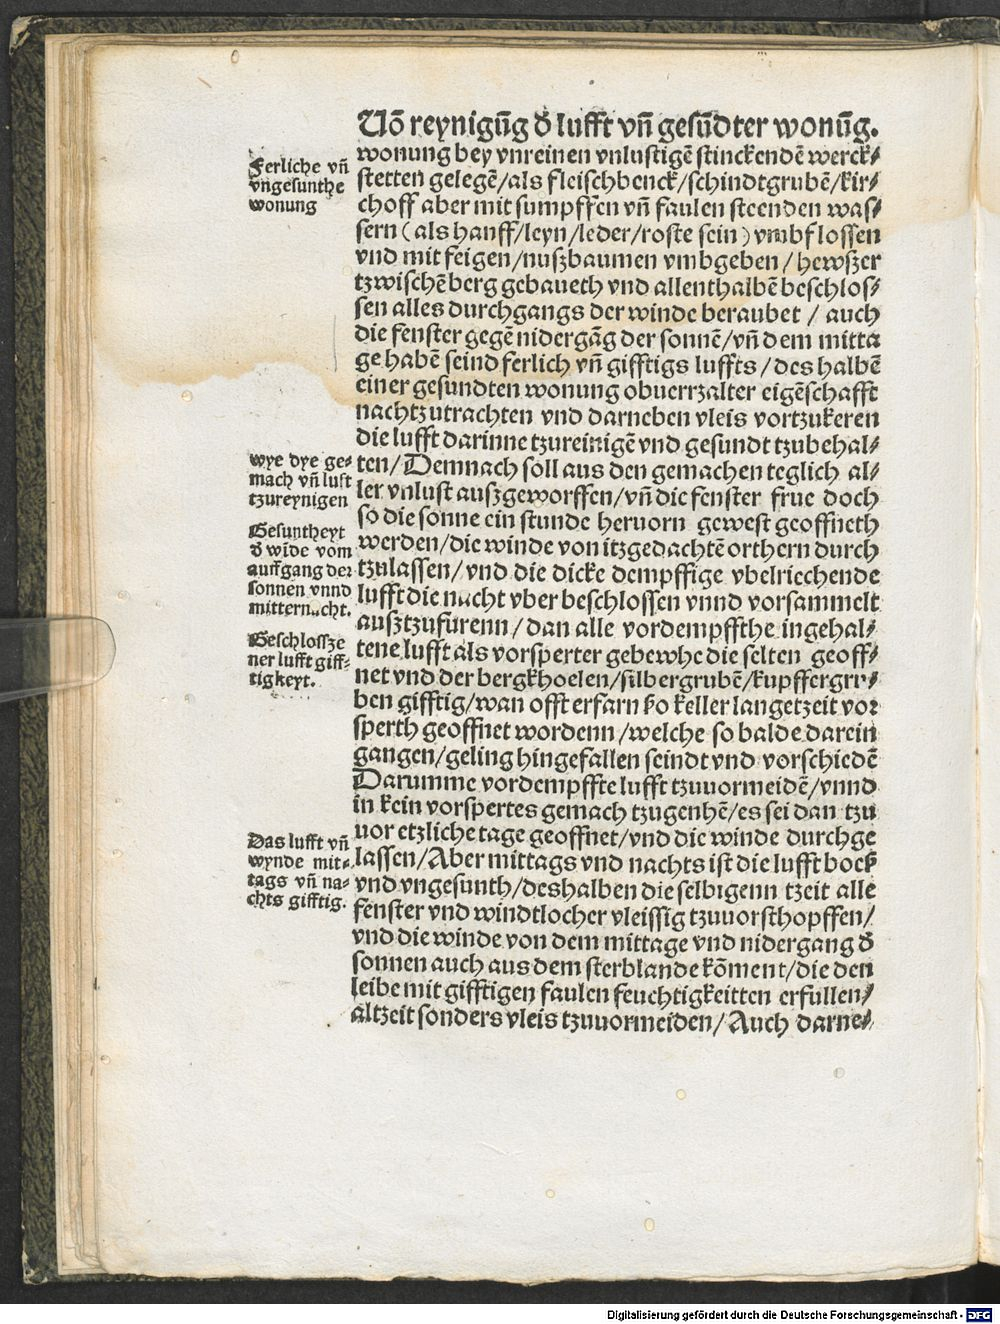 Uō reynigūg d̄ lufft vn̄ gesūdter wonūg.
wonung bey vnreinen vnlustigē stinckendē werck⸗
stetten gelegē/als fleischbenck/schindtgrubē/kir⸗
choff aber mit sumpffen vn̄ faulen steenden was⸗
sern (als hanff/leyn/leder/roste sein) vmbflossen
vnd mit feigen/nuszbaumen vmbgeben/hewszer
tzwischē berg gebaueth vnd allenthalbē beschlos⸗
sen alles durchgangs der winde beraubet / auch
die fenster gegē nidergāg der sonnē/vn̄ dem mitta
ge habē seind ferlich vn̄ gifftigs luffts/des halbē
einer gesundten wonung obuerrzalter eigēschafft
nachtzutrachten vnd darneben vleis vortzukeren
die lufft darinne tzureinigē vnd gesundt tzubehal⸗
ten/Demnach soll aus den gemachen teglich al⸗
ler vnlust auszgeworffen/vn̄ die fenster frue doch
so die sonne ein stunde heruorn gewest geoffneth
werden/die winde von itzgedachtē orthern durch
tzulassen/vnd die dicke dempffige vbelriechende
lufft die nacht vber beschlossen vnnd vorsammelt
ausztzufurenn/dan alle vordempffthe ingehal⸗
tene lufft als vorsperter gebewhe die selten geoff⸗
net vnd der bergkhoelen/silbergrubē/kupffergru⸗
ben gifftig/wan offt erfarn ßo keller langetzeit vor
sperth geoffnet wordenn/welche so balde darein
gangen/geling hingefallen seindt vnd vorschiedē
Darumme vordempffte lufft tzuuormeidē/vnnd
in kein vorspertes gemach tzugenhē/es sei dan tzu
uor etzliche tage geoffnet/vnd die winde durchge
lassen/Aber mittags vnd nachts ist die lufft boeß
vnd vngesunth/deshalben die selbigenn tzeit alle
fenster vnd windtlocher vleissig tzuuorsthopffen/
vnd die winde von dem mittage vnd nidergang d̄
sonnen auch aus dem sterblande kōment/die den
leibe mit gifftigen faulen feuchtigkeitten erfullen/
altzeit sonders vleis tzuuormeiden/Auch darne⸗
Ferliche vn̄
vngesunthe
wonung
wye dye ge⸗
mach vn̄ luft
tzureynigen
Gesuntheyt
d̄ wīde vom
auffgang der
sonnen vnnd
mitternacht.
Beschlossze
ner lufft giff⸗
tigkeyt.
Das lufft vn̄
wynde mit⸗
tags vn̄ na⸗
chts gifftig.
Digitalisierung gefördert durch die Deutsche Forschungsgemeinschaft - DFG